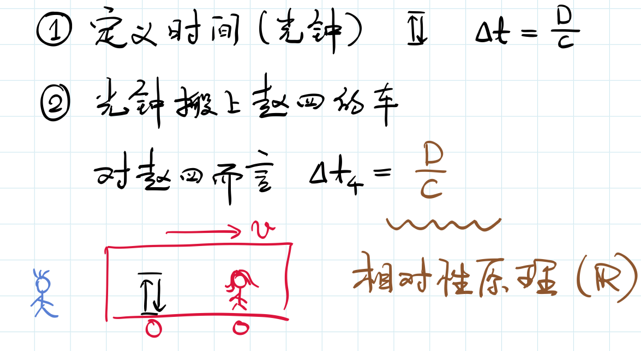 ① 定义时间(光钟) Δt = D/C
② 光钟搬上赵四的车
对赵四而言 Δt₄ = D/C
v
相对性原理(R)